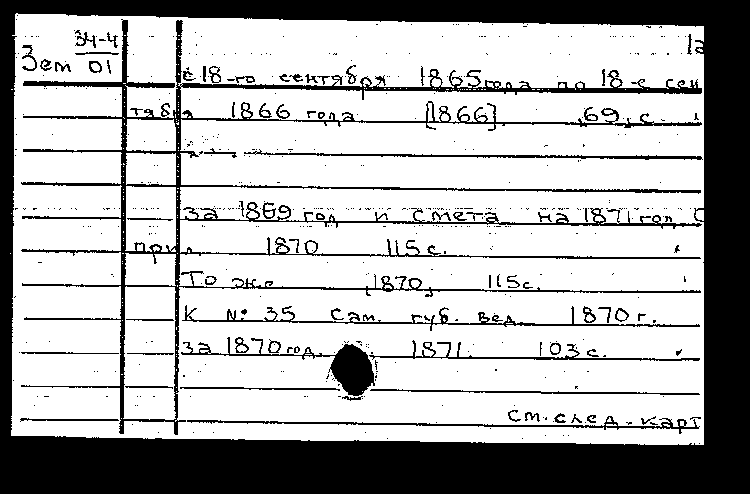 34-4
Зем 01
с 18-го сентября 1865 года по 18-е сен
тября 1866 года [1866]. 69 с.
за 1869 год и смета на 1871 год
прил. 1870 115 с.
То же [1870] 115 с.
К № 35 Сам. губ. вед. 1870 г.
за 1870 год. 1871. 103 с.
см. след. карт